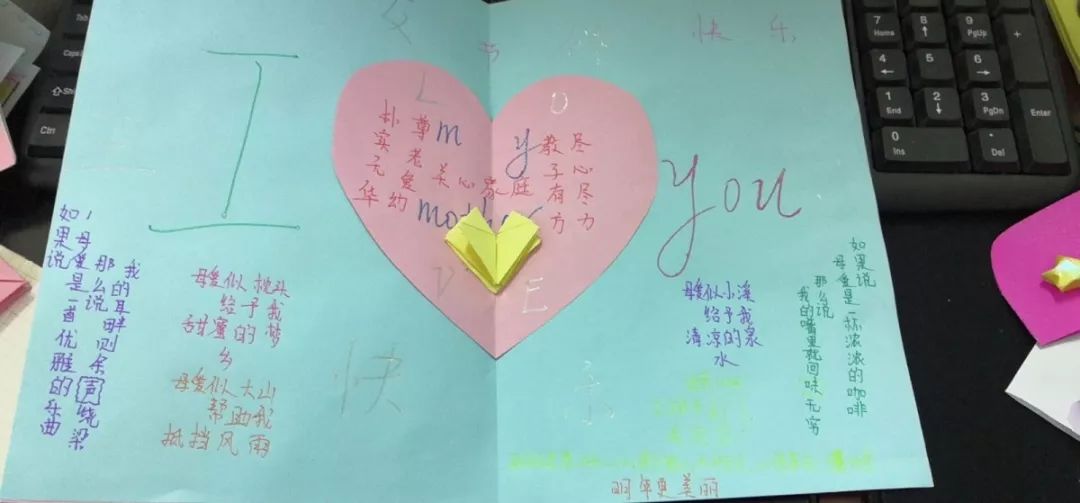 快 乐
I
L O
V E
朴实无华
尊老爱幼
关心家庭
教子有方
尽心尽力
my
mother
you
快 乐
如果说
母爱是一首优雅的乐曲
那么说
我的耳畔则余声绕梁
母爱似枕头
给予我
甜蜜的梦
乡
母爱似大山
帮助我
抵挡风雨
母爱似小溪
给予我
清凉的泉
水
如果说
母爱是一杯浓浓的咖啡
那么说
我的嘴里就回味无穷
明年更美丽
Tab
Caps
Shift
Ctrl
7 Home
8 ↑
9 PgUp
+
4 ←
5
6 →
1 End
2 ↓
3 PgDn
Enter
0 Ins
. Del